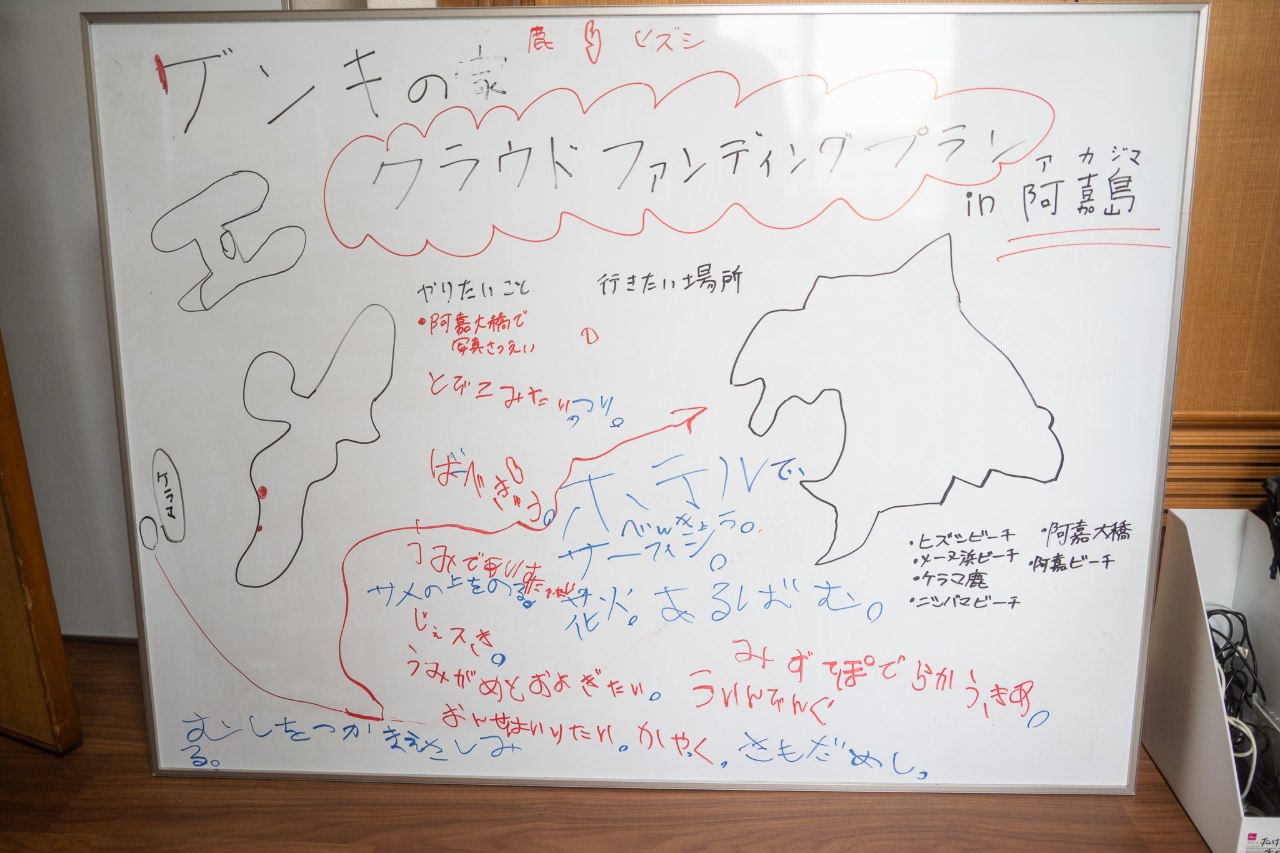 鹿 ヒズシ
ゲンキの家
クラウドファンディングプラン
アカジマ
in 阿嘉島
やりたいこと
行きたい場所
・阿嘉大橋で
写真さつえい
とびこみたい
つり。
ばーべきゅう。
ホテルで、
べんきょう。
サーフィン。
うみで
サメの上をのる。
花火。
あるばむ。
ケラマ
・ヒズシビーチ
・メーヌ浜ビーチ
・ケラマ鹿
・ニシバマビーチ
・阿嘉大橋
・阿嘉ビーチ
じぇスき。
うみがめとおよぎたい。
みずてぽで
ういんでんぐ
おんせはいりたい。かやく。きもだめし。